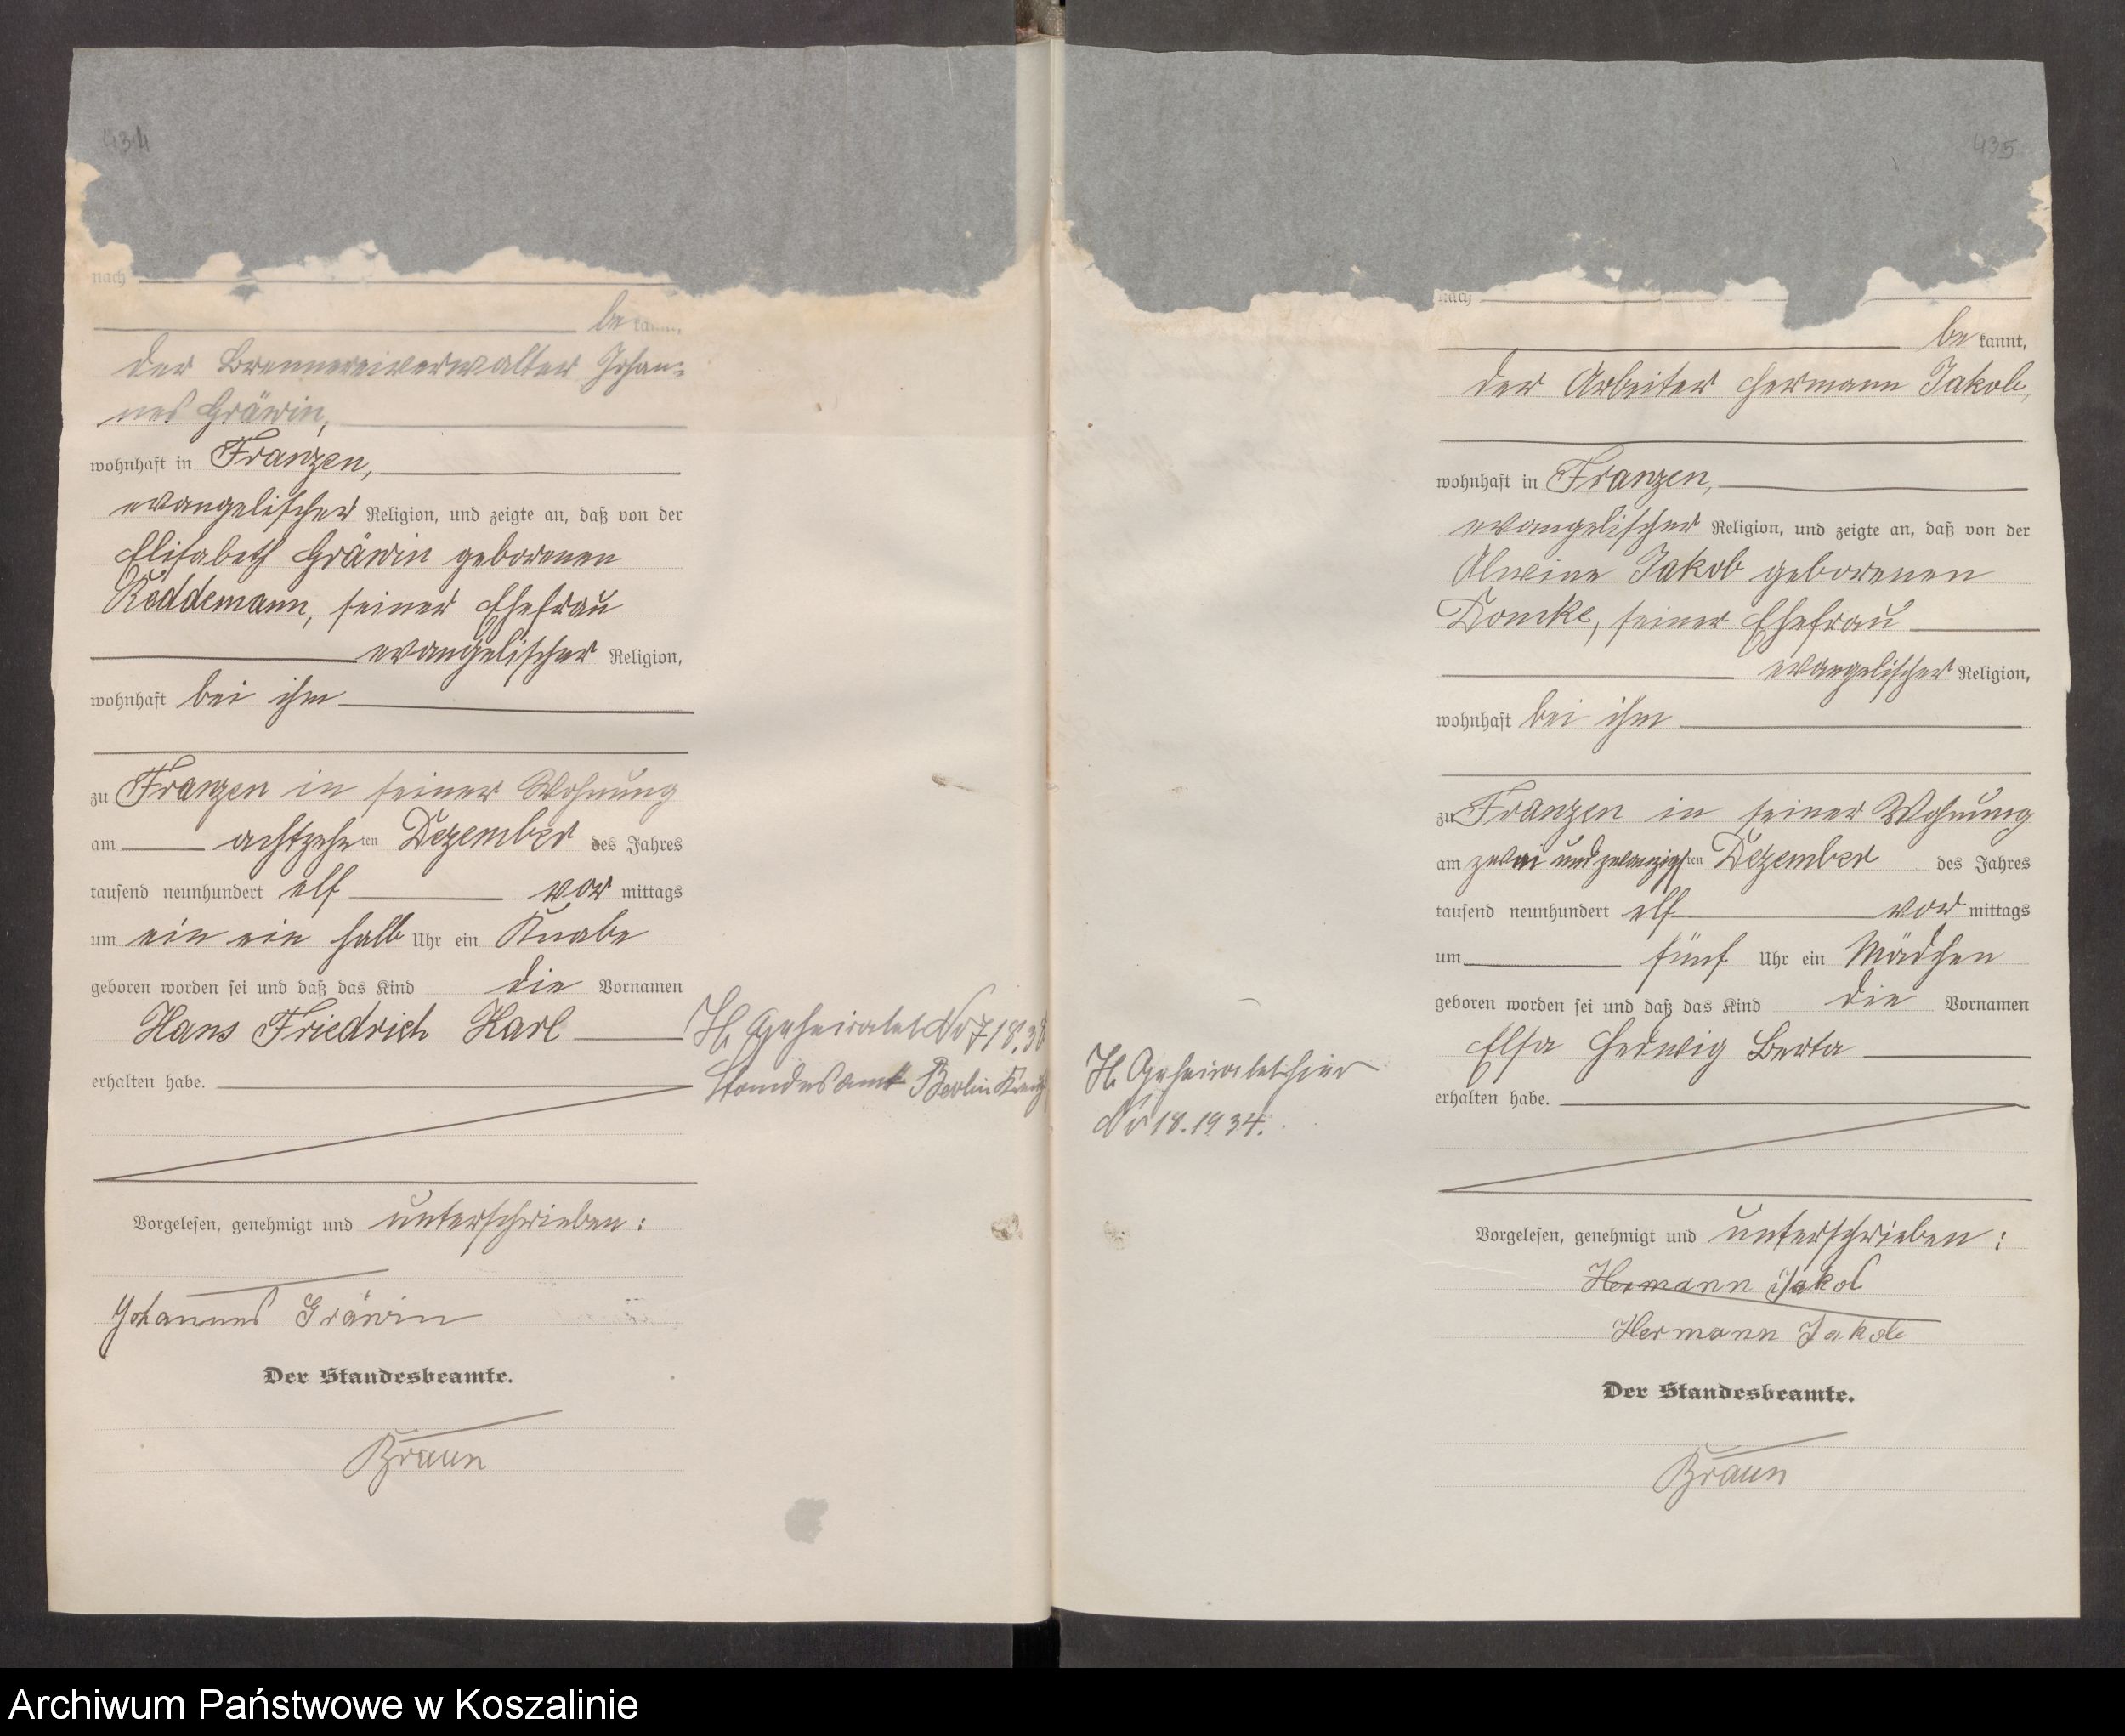 434
nach
be kannt,
der Brennereiverwalter Johan-
nes Gräwin,
wohnhaft in Franzen,
evangelischer Religion, und zeigte an, daß von der
Elisabeth Gräwin geborenen
Reddemann, seiner Ehefrau
evangelischer Religion,
wohnhaft bei ihm
zu Franzen in seiner Wohnung
am achtzehnten Dezember des Jahres
tausend neunhundert elf vor mittags
um ein ein halb Uhr ein Knabe
geboren worden sei und daß das Kind die Vornamen
Hans Friedrich Karl
erhalten habe.
Vorgelesen, genehmigt und unterschrieben:
Johannes Gräwin
Der Standesbeamte.
Braun
H. Geheiratet No 718.38
Standesamt Berlin
435
nach
be kannt,
der Arbeiter Hermann Jakob,
wohnhaft in Franzen,
evangelischer Religion, und zeigte an, daß von der
Alwine Jakob geborenen
Domke, seiner Ehefrau
evangelischer Religion,
wohnhaft bei ihm
zu Franzen in seiner Wohnung
am zwei und zwanzigsten Dezember des Jahres
tausend neunhundert elf vor mittags
um fünf Uhr ein Mädchen
geboren worden sei und daß das Kind die Vornamen
Elsa Hedwig Berta
erhalten habe.
Vorgelesen, genehmigt und unterschrieben:
Hermann Jakob
Hermann Jakob
Der Standesbeamte.
Braun
H. Geheiratet hier
No 18.1934.
Archiwum Państwowe w Koszalinie